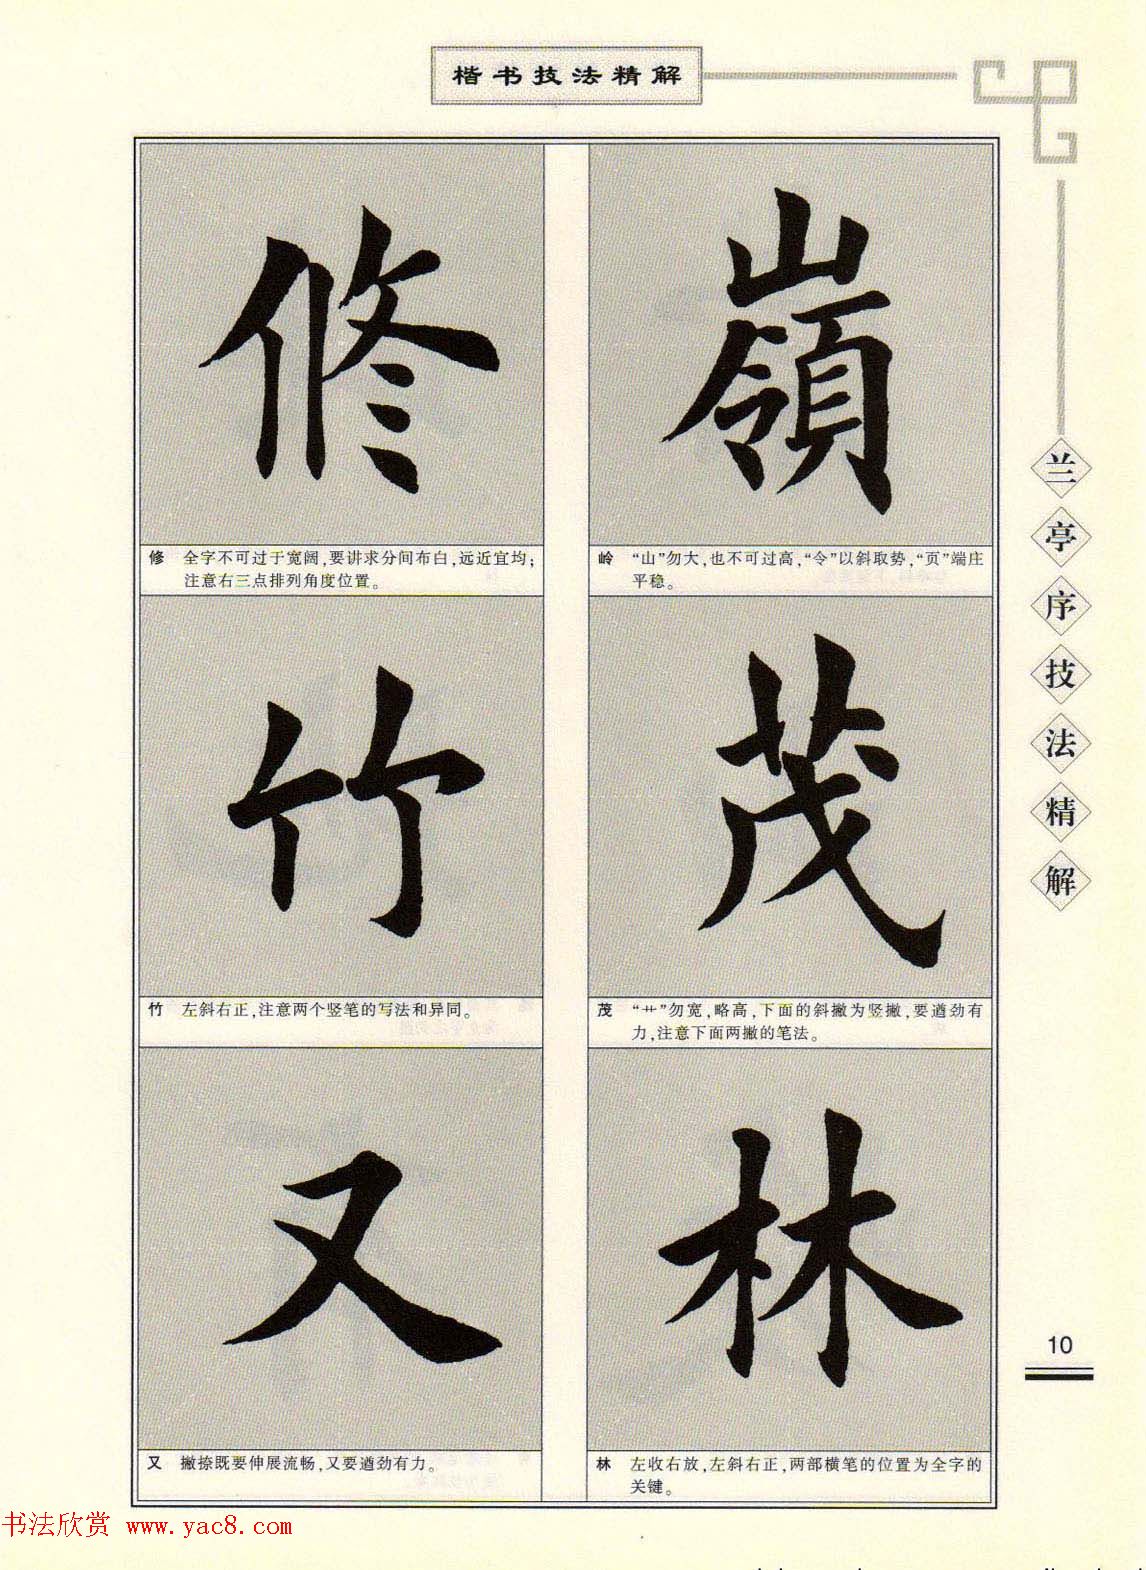 楷书技法精解
嶺
岭 “山”勿大,也不可过高,“令”以斜取势,“页”端庄
平稳。
茂
茂 “艹”勿宽,略高,下面的斜撇为竖撇,要遒劲有
力,注意下面两撇的笔法。
林
林 左收右放,左斜右正,两部横笔的位置为全字的
关键。
修
修 全字不可过于宽阔,要讲求分间布白,远近宜均;
注意右三点排列角度位置。
竹
竹 左斜右正,注意两个竖笔的写法和异同。
又
又 撇捺既要伸展流畅,又要遒劲有力。
兰亭序技法精解
10
书法欣赏 www.yac8.com